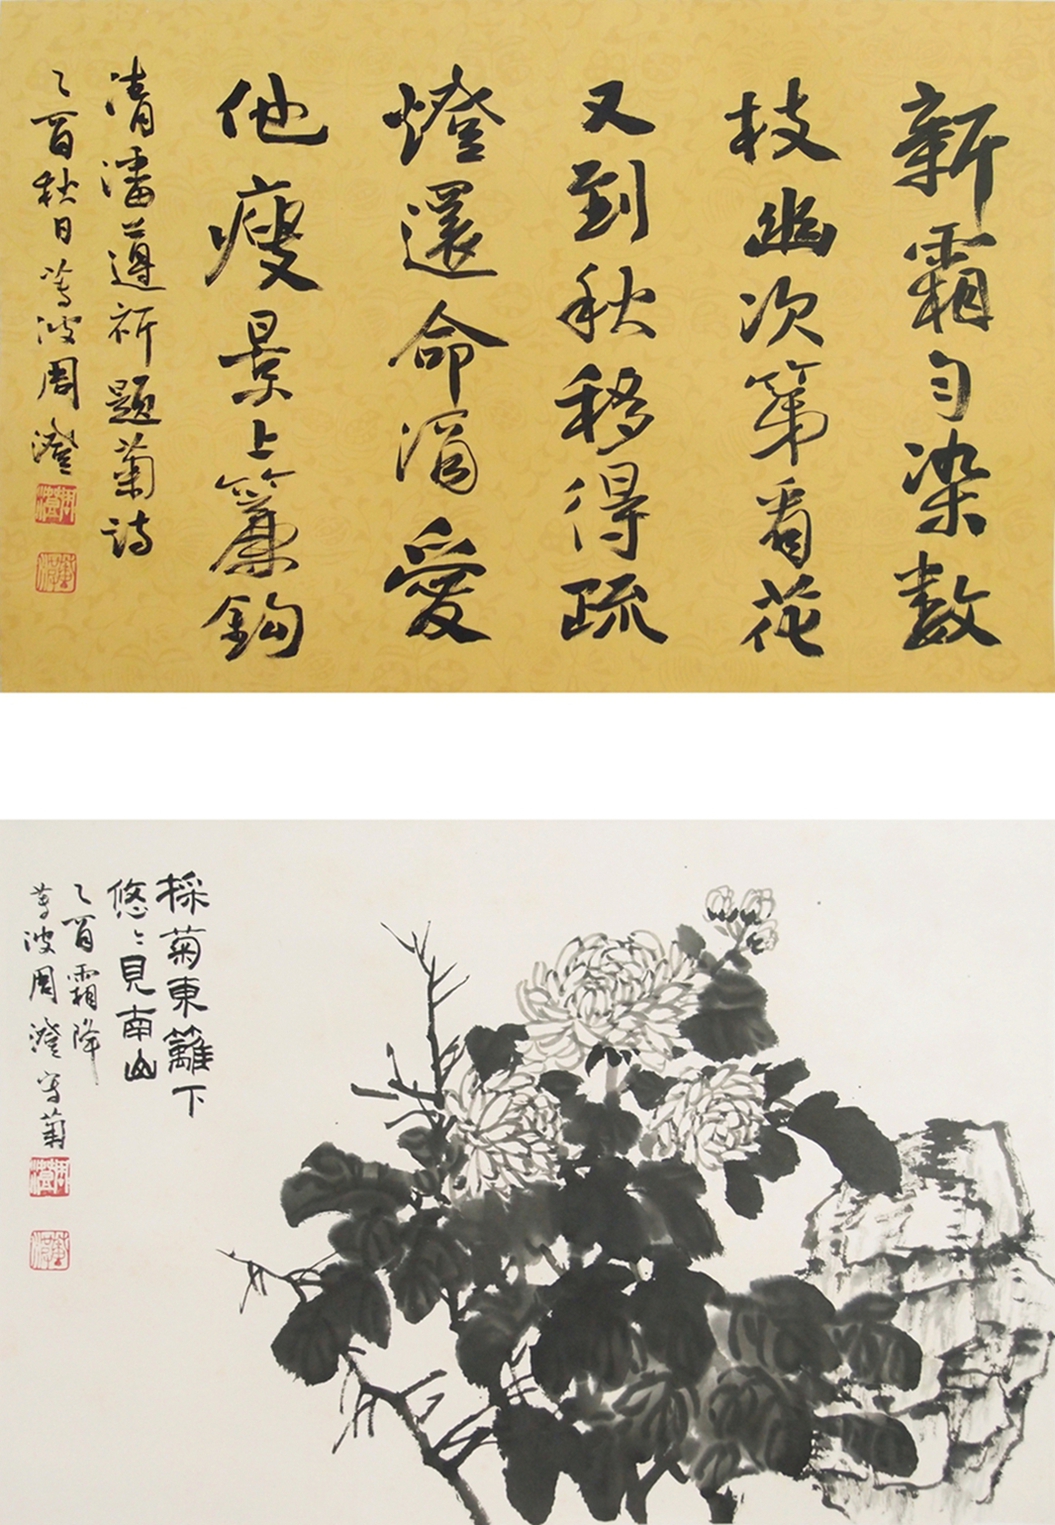 新霜勻染數
枝幽次第看花
又到秋移得疏
燈還命酒愛
他瘦景上簾鈎
清潘遵祈題菊詩
乙酉秋日蓴波周澄
採菊東籬下
悠悠見南山
乙酉霜降
蓴波周澄寫菊